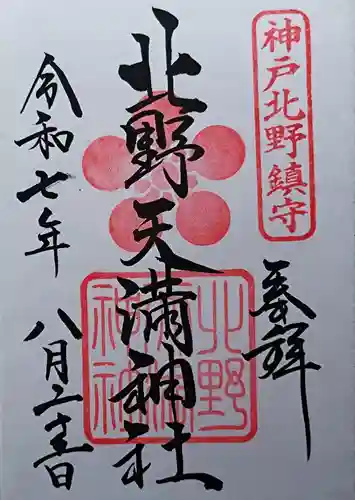 神戸北野鎮守
奉拝
北野天満神社
北野天満神社
令和七年
八月二十日